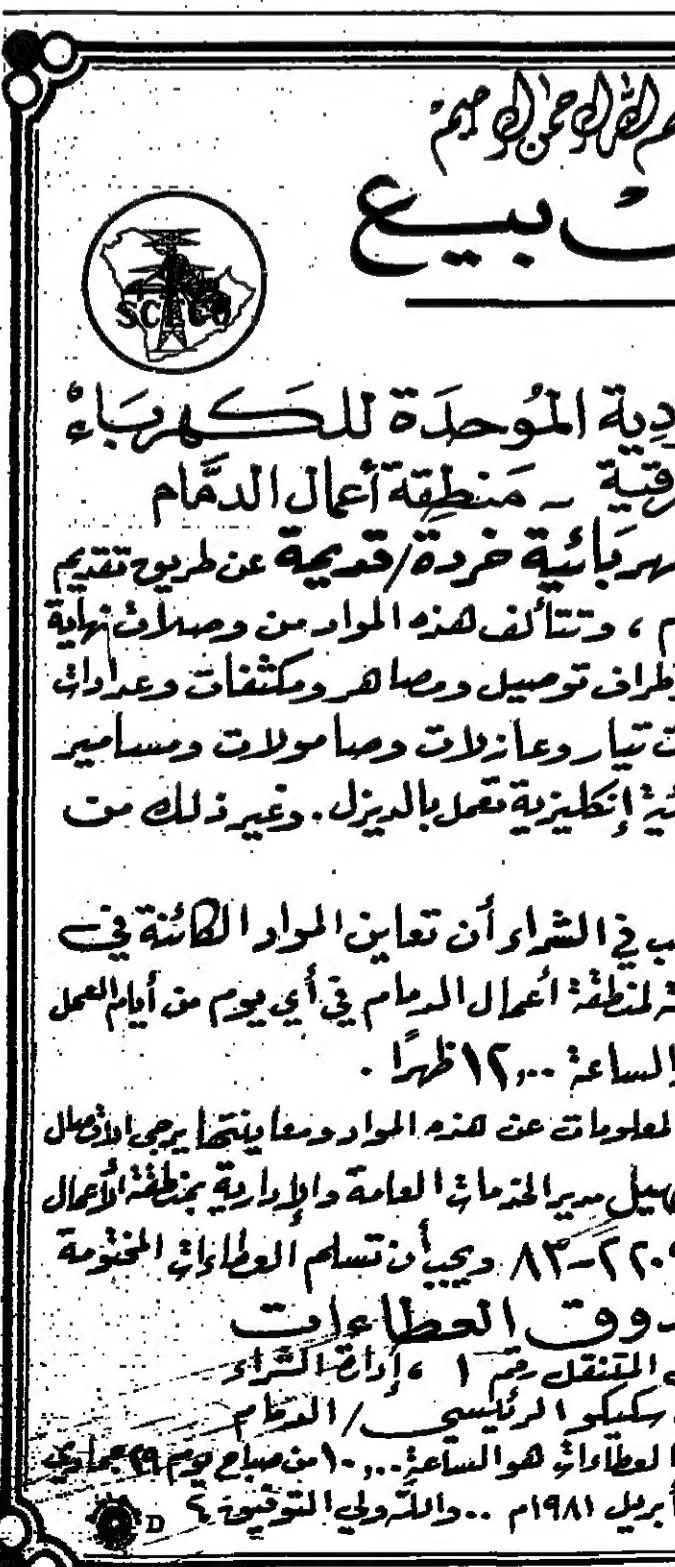 الله الرحمن الرحيم
بيع
SCECO
المُوحدَة للكهرباء
ـ مَنطِقة أعمال الدمّام
خردة/قديمة عن طريق تقديم
، وتتألف هذه المواد من وصلات نهاية
توصيل ومصاهر ومكثفات وعدادات
تيار وعازلات وصامولات ومسامير
إنكليزية تعمل بالديزل . وغير ذلك من
في الشراء أن تعاين المواد الكائنة في
لمنطقة أعمال الدمام في أي يوم من أيام العمل
الساعة ١٢,٠٠ ظهرًا .
المعلومات عن هذه المواد ومعاينتها يرجى الاتصال
مدير الخدمات العامة والإدارية بمنطقة الأعمال
ويجب أن تسلم العطاءات المختومة
العطاءات
المتنقل رقم ١ ، إدارة الشراء
سكيكو الرئيسي / الدمام
العطاءات هو الساعة ١٠,٠٠ من صباح يوم ٢٩ جمادى
أبريل ١٩٨١م .. والله ولي التوفيق ؟
D